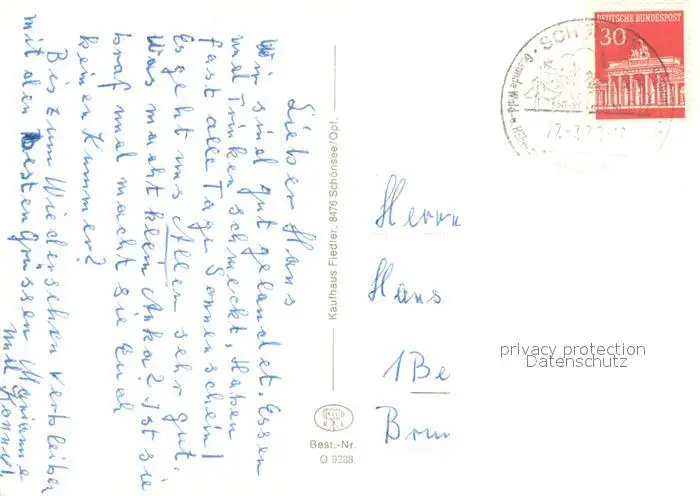 Lieber Hans
Wir sind gut gelandet. Essen
und Trinken schmeckt, Haben
fast alle Tage Sonnenschein!
Es geht uns Allen sehr gut.
Was macht klein Anka? Ist sie
braf und macht sie Euch
keinen Kummer?
Bis zum Wiedersehen verbleiben
mit den besten Grüssen Mariane
und
Kaufhaus Fiedler, 8476 Schönsee/Opf.
Best.-Nr.
9288
DEUTSCHE BUNDESPOST
30
Gesunde Wald-
Herrn
Hans
1 Be
Brun
privacy protection
Datenschutz